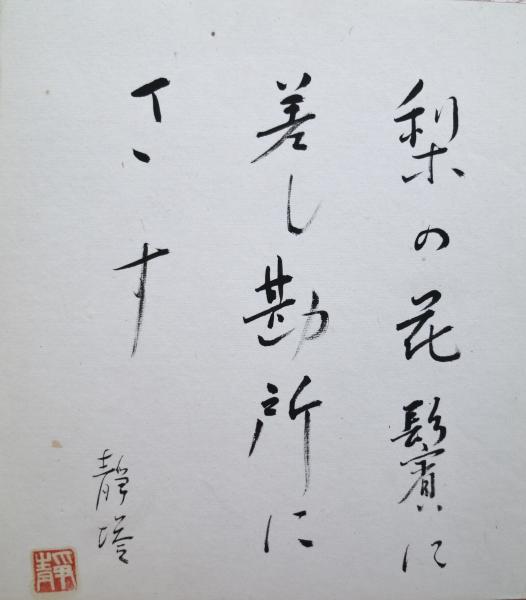 梨の花鬢に
差し勘所に
さす
靜塔
靜